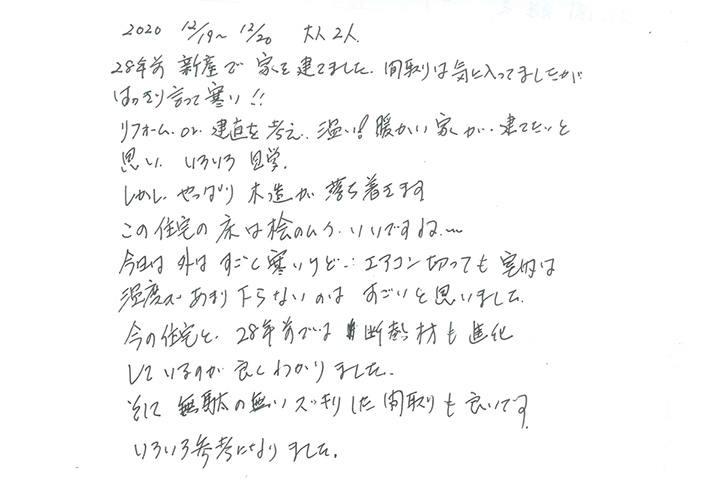 2020 12/19~ 12/20 大人2人
28年前 新産で 家を建てました. 間取りは気に入ってましたが
はっきり言って寒い!!
リフォーム or 建直を考え. 温い! 暖かい家が. 建てたいと
思い. いろいろ 見学.
しかし. やっぱり 木造が 落ち着きます
この住宅の床は桧のムク. いいですね.~
今日は 外は すごく寒いけど… エアコン切っても 室内は
温度が あまり下らないのは すごいと思いました.
今の住宅と. 28年前では 断熱材も 進化
しているのが 良くわかりました.
そして 無駄の無いスッキリした間取りも良いです
いろいろ参考になりました.